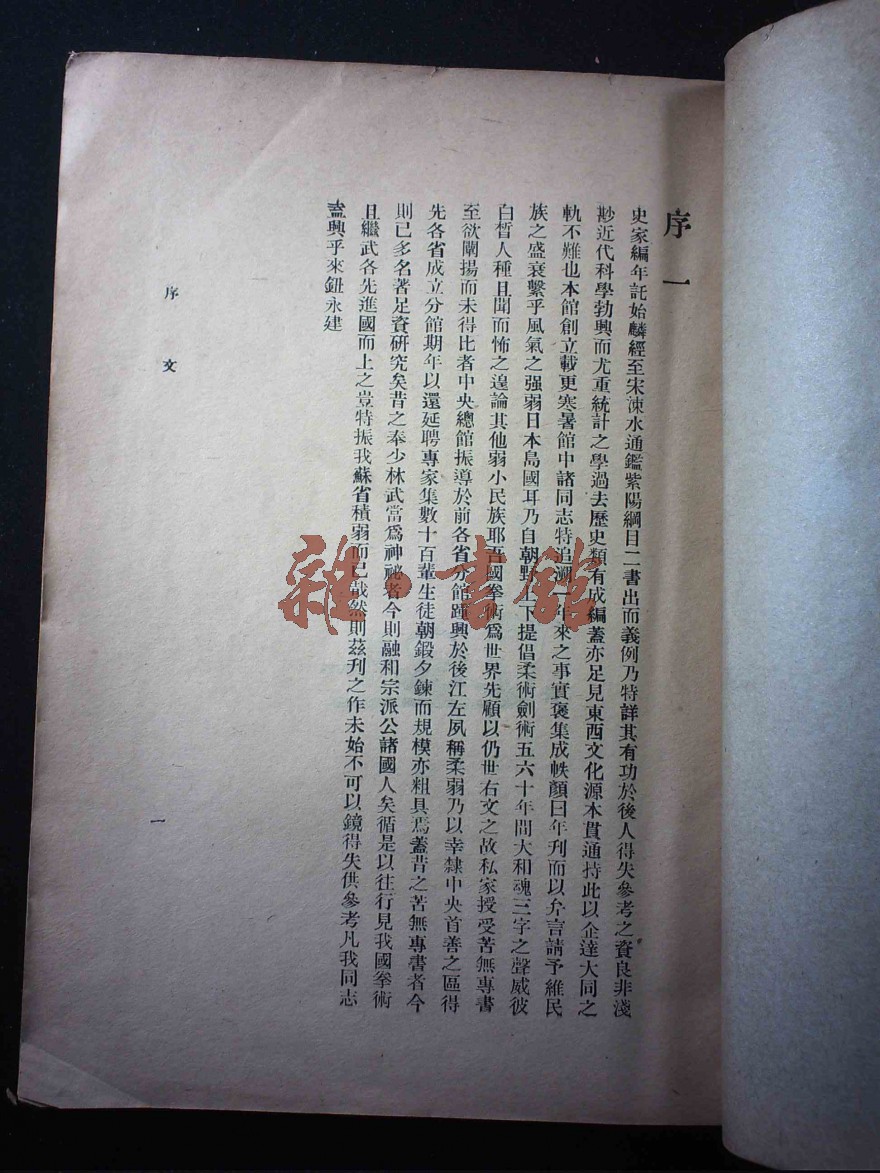 序一
史家編年託始麟經至宋涑水通鑑紫陽綱目二書出而義例乃特詳其有功於後人得失參考之資良非淺
尠近代科學勃興而尤重統計之學過去歷史類有成編蓋亦足見東西文化源本貫通持此以企達大同之
軌不難也本館創立載更寒暑館中諸同志特追溯一年來之事實褒集成帙顏曰年刊而以弁言請予維民
族之盛衰繫乎風氣之强弱日本島國耳乃自朝野上下提倡柔術劍術五六十年間大和魂三字之聲威彼
白皙人種且聞而怖之遑論其他弱小民族耶吾國拳術爲世界先顧以仍世右文之故私家授受苦無專書
至欲闡揚而未得比者中央總館振導於前各省分館踵興於後江左夙稱柔弱乃以幸隸中央首善之區得
先各省成立分館期年以還延聘專家集數十百輩生徒朝鍛夕鍊而規模亦粗具焉蓋昔之苦無專書者今
則已多名著足資研究矣昔之奉少林武當爲神祕者今則融和宗派公諸國人矣循是以往行見我國拳術
且繼武各先進國而上之豈特振我蘇省積弱而已哉然則茲刋之作未始不可以鏡得失供參考凡我同志
盍興乎來鈕永建
序文
一
雜·書館